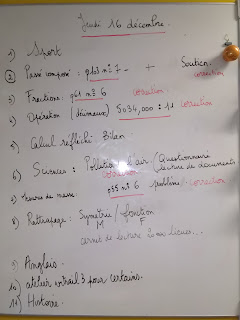 Jeudi 16 décembre.
1) Sport
2) Passé composé : p163 n°7 - + Soutien
correction
3) Fractions : p61 n°6 correction
4) Opération (décimaux) 5034,000 : 11 correction
5) Calcul réfléchi Bilan
6) Sciences : Pollution d'air (Questionnaire
correction lecture de documents
7) mesures de masse : p95 n°6 problème correction
8) Rattrapage : Symétrie / fonction
M F
carnet de lecture
9) Anglais
10) atelier extrait 3 pour certains.
11) Histoire.